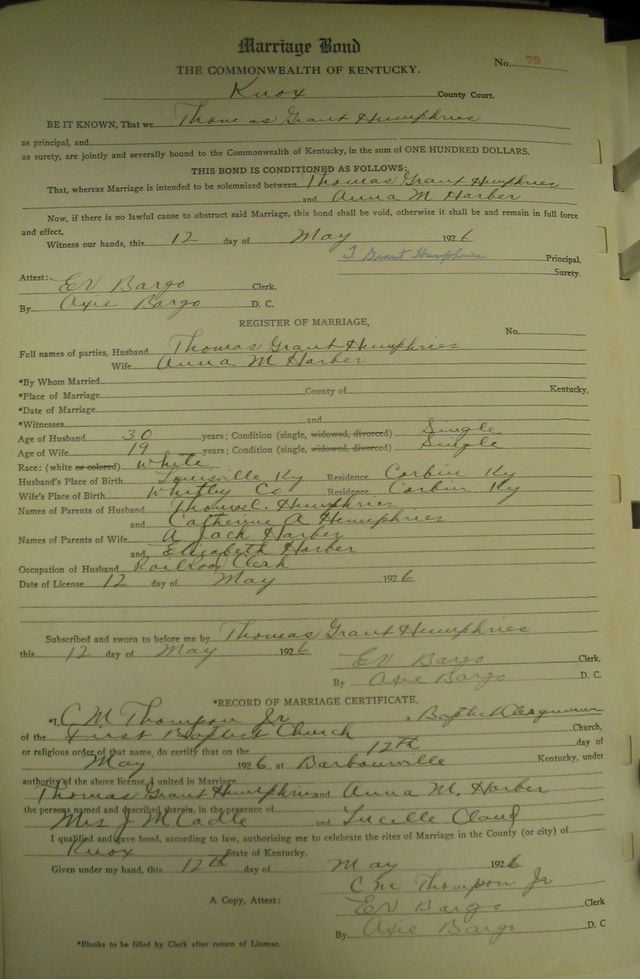 Marriage Bond
No. 79
THE COMMONWEALTH OF KENTUCKY.
Knox County Court.
BE IT KNOWN, That we Thomas Grant Humphries
as principal, and
as surety, are jointly and severally bound to the Commonwealth of Kentucky, in the sum of ONE HUNDRED DOLLARS.
THIS BOND IS CONDITIONED AS FOLLOWS:
That, whereas Marriage is intended to be solemnized between Thomas Grant Humphries
and Anna M Harber
Now, if there is no lawful cause to obstruct said Marriage, this bond shall be void, otherwise it shall be and remain in full force
and effect,
Witness our hands, this 12 day of May 1926
T Grant Humphries Principal.
Surety.
Attest: EV Bargo Clerk.
By Axie Bargo D. C.
REGISTER OF MARRIAGE,
No.
Full names of parties, Husband Thomas Grant Humphries
Wife Anna M Harber
*By Whom Married
*Place of Marriage County of Kentucky.
*Date of Marriage
*Witnesses and
Age of Husband 30 years; Condition (single, widowed, divorced) Single
Age of Wife 19 years; Condition (single, widowed, divorced) Single
Race: (white or colored) White
Husband's Place of Birth Louisville Ky Residence Corbin Ky
Wife's Place of Birth Whitley Co Residence Corbin Ky
Names of Parents of Husband Thomas C. Humphries
and Catherine A Humphries
Names of Parents of Wife A Jack Harber
and Elizabeth Harber
Occupation of Husband Railroad Clerk
Date of License 12 day of May 1926
Subscribed and sworn to before me by Thomas Grant Humphries
this 12 day of May 1926
EV Bargo Clerk.
By Axie Bargo D. C.
*RECORD OF MARRIAGE CERTIFICATE.
*I, C M Thompson Jr a Baptist Clergyman
of the First Baptist Church Church,
or religious order of that name, do certify that on the 12th day of
May 1926, at Barbourville Kentucky, under
authority of the above license, I united in Marriage
Thomas Grant Humphries and Anna M. Harber
the persons named and described therein, in the presence of
Mrs J M Cadle and Lucille Cloud
I qualified and gave bond, according to law, authorizing me to celebrate the rites of Marriage in the County (or city) of
Knox State of Kentucky.
Given under my hand, this 12th day of May 1926
C M Thompson Jr
A Copy, Attest: EV Bargo Clerk
By Axie Bargo D. C
*Blanks to be filled by Clerk after return of License.